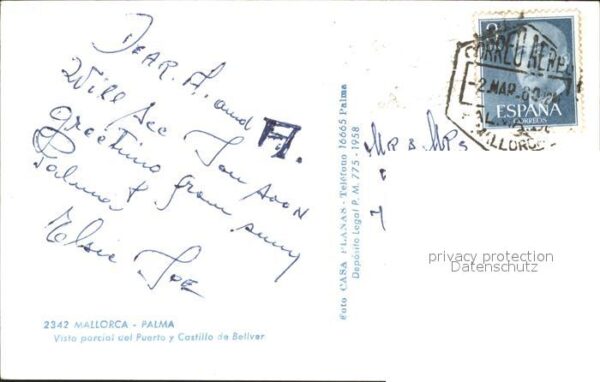 DEAR. A. and A.
Will See You Soon
greetins from sunny
Palma
Elsie Joe
2342 MALLORCA - PALMA
Vista parcial del Puerto y Castillo de Bellver
Foto CASA PLANAS - Teléfono 16665 Palma
Depósito Legal P. M. 775 - 1958
CORREO AEREO
-2.MAR.60
MALLORCA
ESPAÑA
CORREOS
MR & MRS
privacy protection
Datenschutz